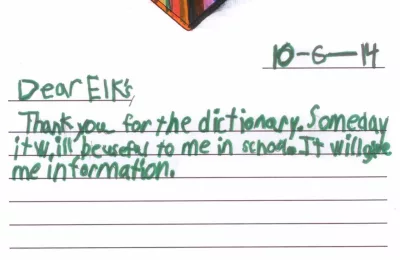 10-6-14
Dear Elks,
Thank you for the dictionary. Someday
it will be useful to me in school. It will give
me information.